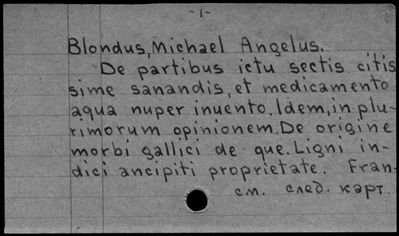 -1-
Blondus, Michael Angelus.
De partibus ictu sectis citis
sime sanandis, et medicamento
aqua nuper inuento. Idem, in plu-
rimorum opinionem. De origine
morbi gallici de que. Ligni in-
dici ancipiti proprietate. Fran-
см. след. карт.